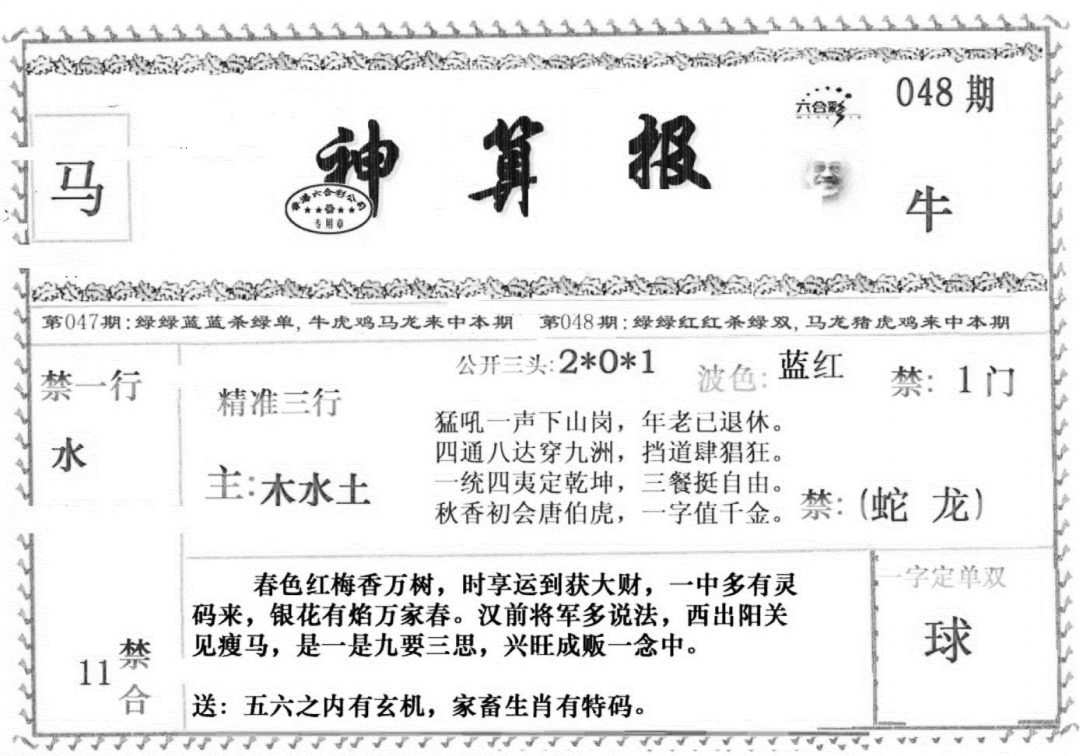 048期
六合彩
马
神算报
香港六合彩公司
专用章
牛
第047期:绿绿蓝蓝杀绿单,牛虎鸡马龙来中本期 第048期:绿绿红红杀绿双,马龙猪虎鸡来中本期
禁一行
水
精准三行
主:木水土
公开三头:2*0*1
波色:蓝红
禁:1门
猛吼一声下山岗,年老已退休。
四通八达穿九洲,挡道肆猖狂。
一统四夷定乾坤,三餐挺自由。
秋香初会唐伯虎,一字值千金。
禁:(蛇 龙)
11禁合
春色红梅香万树,时享运到获大财,一中多有灵
码来,银花有焰万家春。汉前将军多说法,西出阳关
见瘦马,是一是九要三思,兴旺成贩一念中。
送:五六之内有玄机,家畜生肖有特码。
一字定单双
球